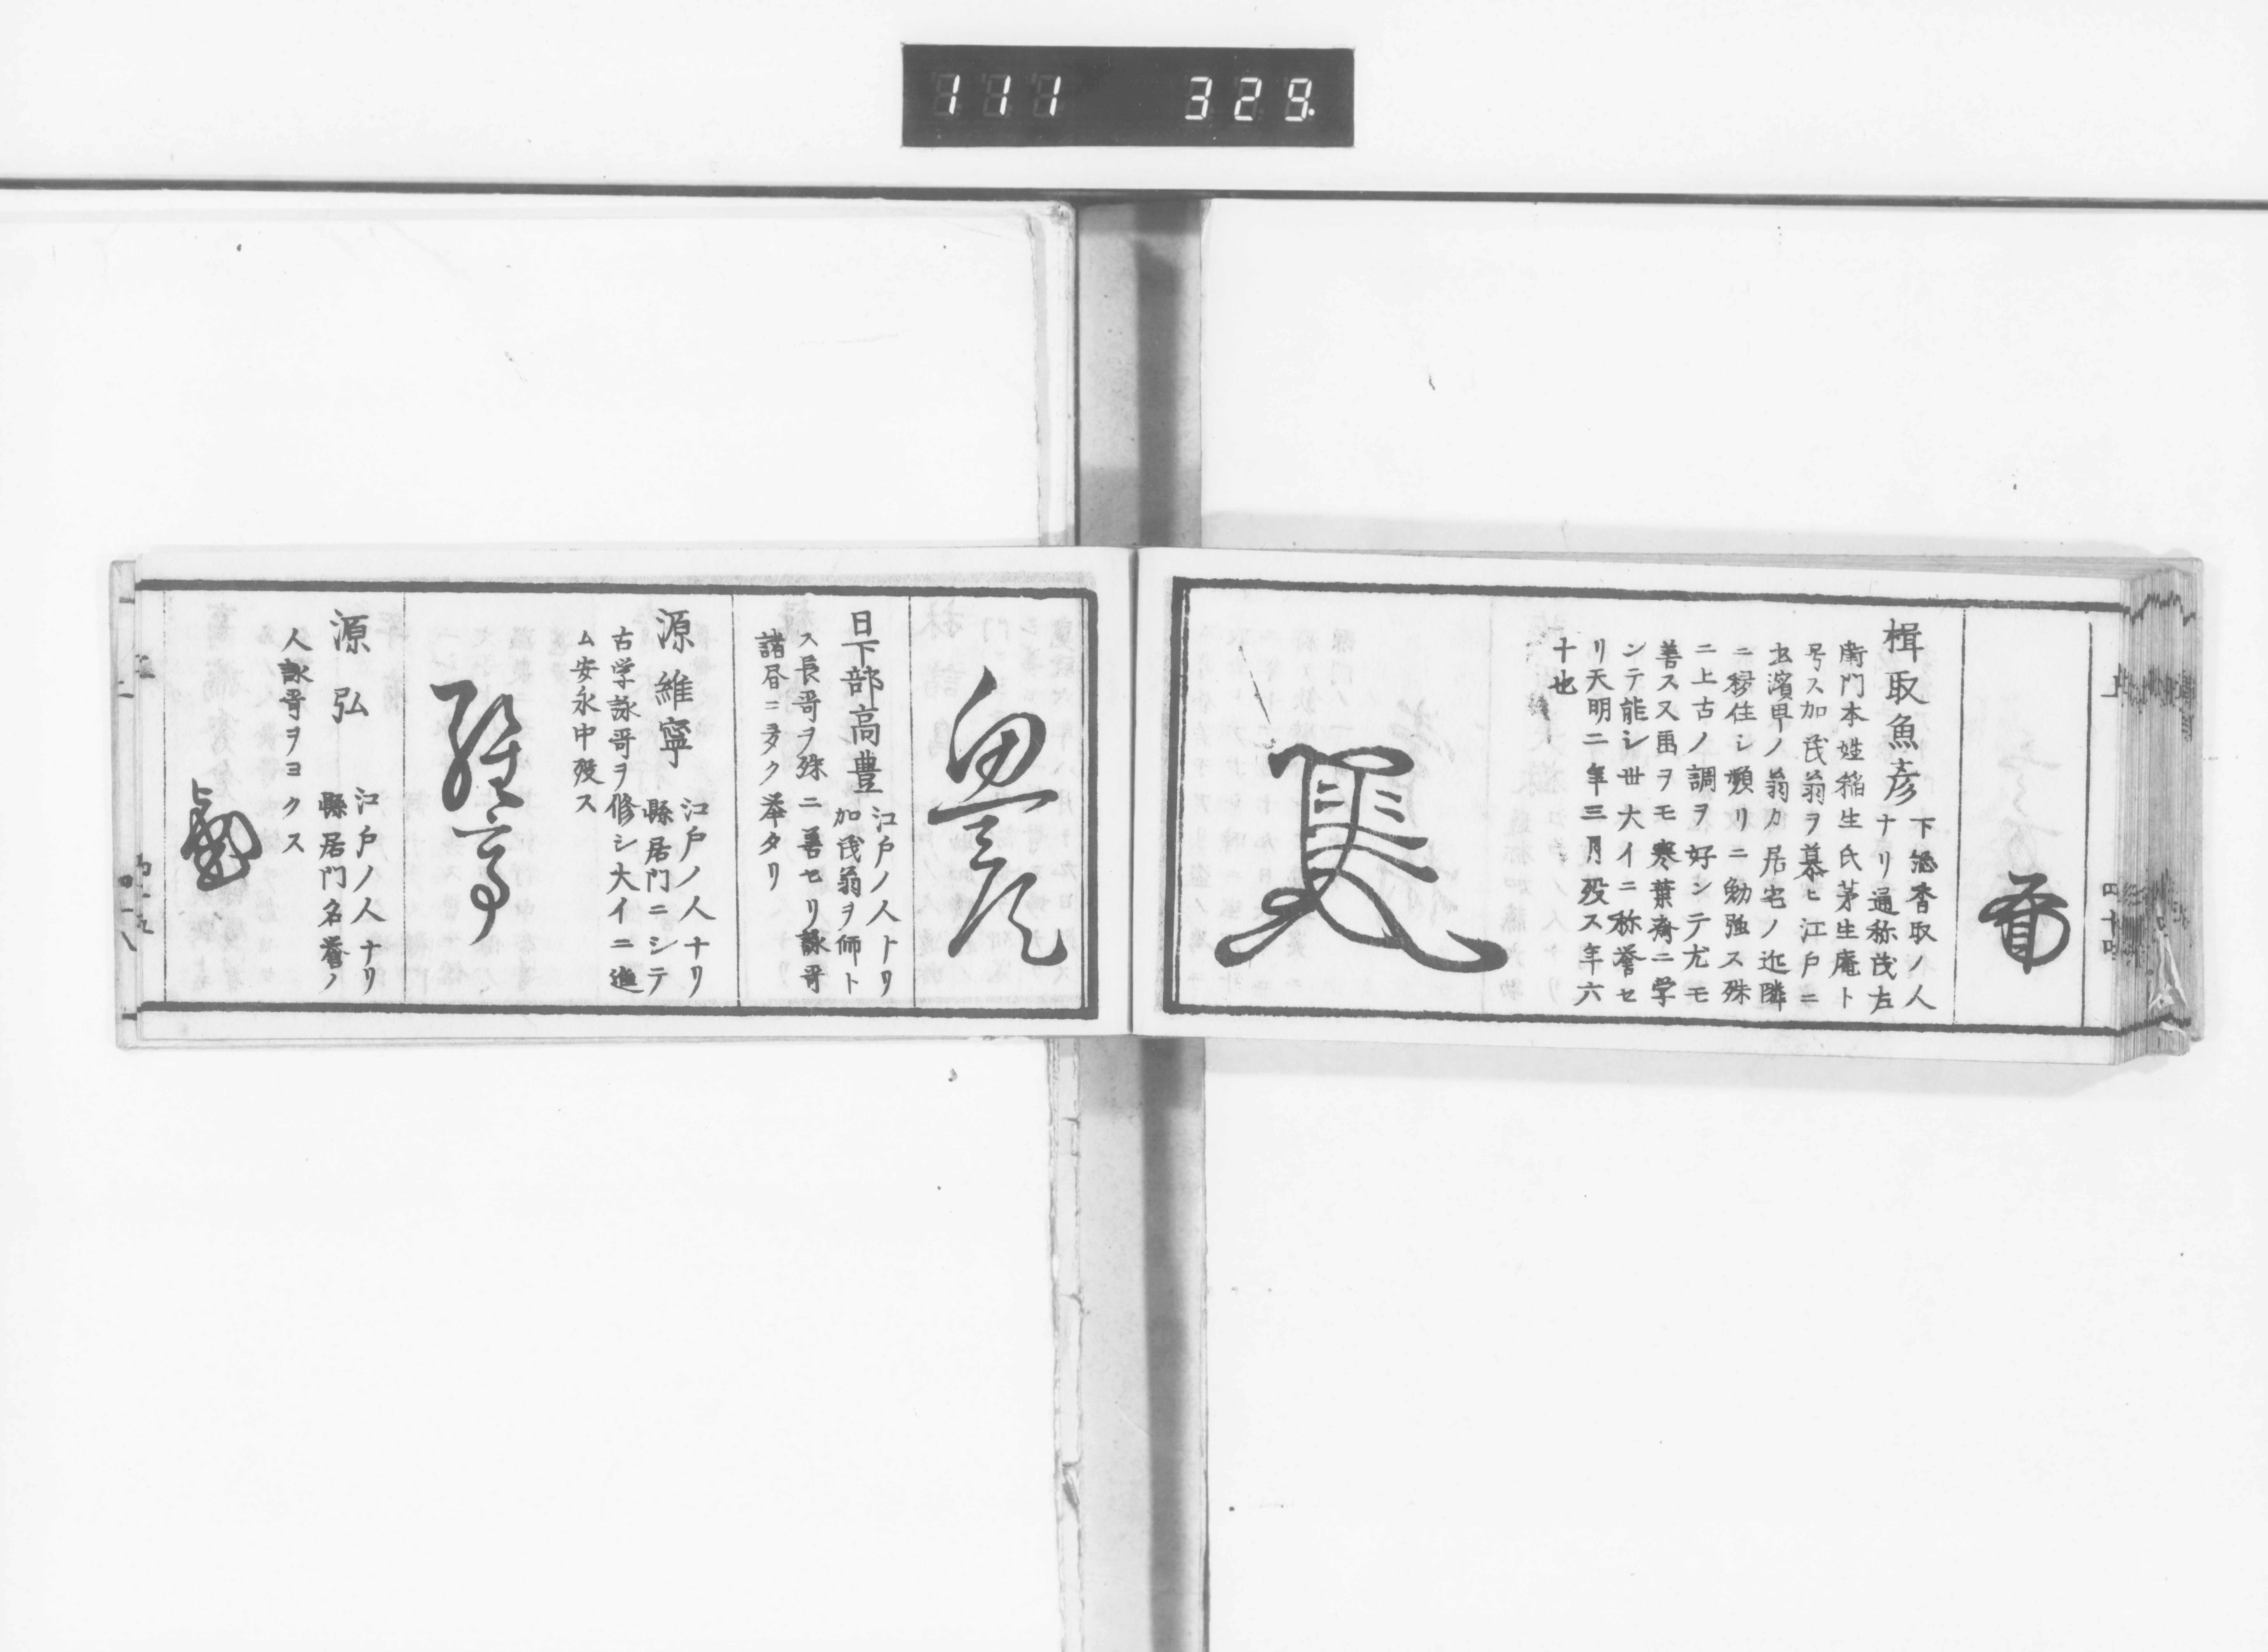 111 329
楫取魚彦
下総香取ノ人
ナリ通称茂左
衛門本姓稲生氏茅生庵ト
号ス加茂翁ヲ慕ヒ江戸ニ
出濱町ノ翁カ居宅ノ近隣
ニ移住シ頻リニ勉強ス殊
ニ上古ノ調ヲ好ンテ尤モ
善ス又画ヲモ寒葉斎ニ学
ンテ能シ世大イニ称誉セ
リ天明二年三月歿ス年六
十也
日下部高豊
江戸ノ人ナリ
加茂翁ヲ師ト
ス長哥ヲ殊ニ善セリ詠哥
諸書ニ多ク挙タリ
源維寧
江戸ノ人ナリ
縣居門ニシテ
古学詠哥ヲ修シ大イニ進
ム安永中歿ス
源弘
江戸ノ人ナリ
縣居門名誉ノ
人詠哥ヲヨクス